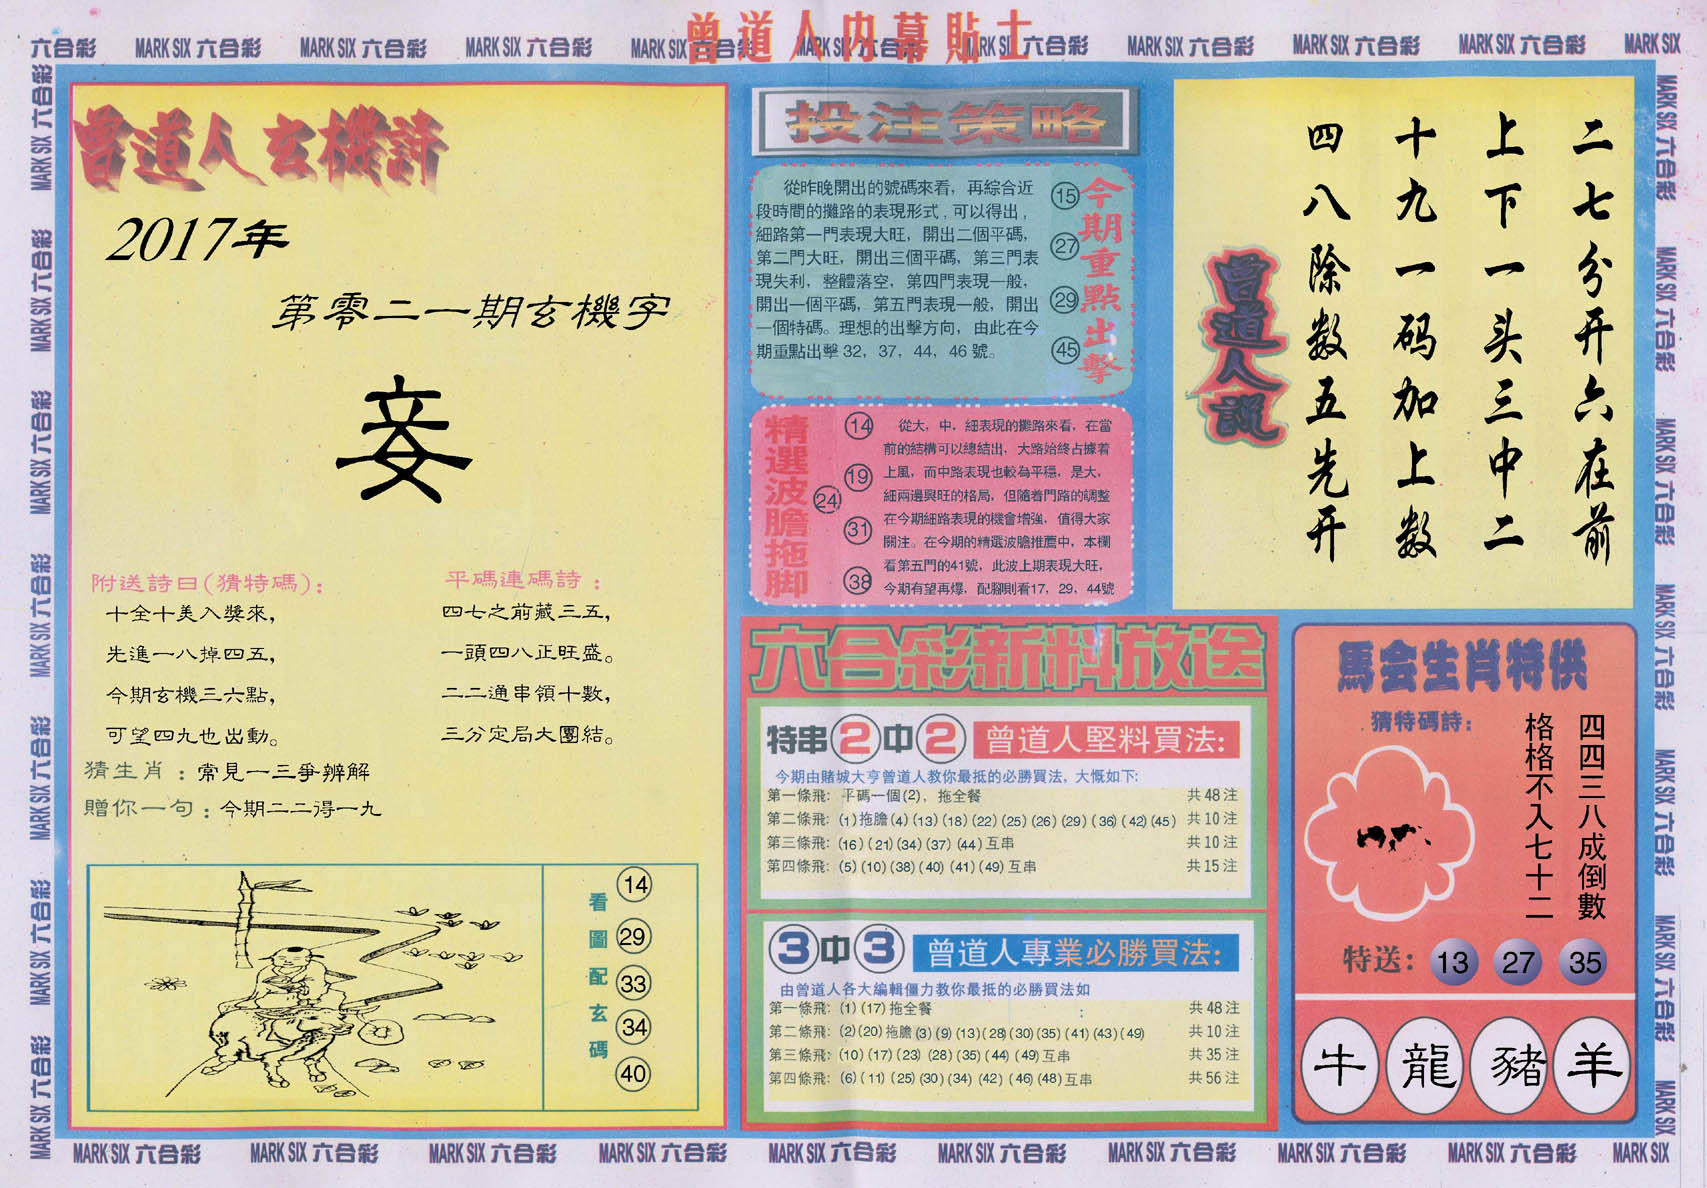 曾道人内幕貼士
六合彩 MARK SIX 六合彩 MARK SIX 六合彩 MARK SIX 六合彩 MARK SIX 六合彩 MARK SIX 六合彩 MARK SIX 六合彩 MARK SIX 六合彩 MARK SIX 六合彩 MARK SIX
曾道人玄機詩
2017年
第零二一期玄機字
妾
附送詩曰(猜特碼):
十全十美入獎來,
先進一八掉四五,
今期玄機三六點,
可望四九也出動。
平碼連碼詩:
四七之前藏三五,
一頭四八正旺盛。
二二通串領十數,
三分定局大團結。
猜生肖:常見一三爭辨解
贈你一句:今期二二得一九
看圖配玄碼
14
29
33
34
40
投注策略
從昨晚開出的號碼來看，再綜合近
段時間的攤路的表現形式，可以得出，
細路第一門表現大旺，開出二個平碼，
第二門大旺，開出三個平碼，第三門表
現失利，整體落空，第四門表現一般，
開出一個平碼，第五門表現一般，開出
一個特碼。理想的出擊方向，由此在今
期重點出擊 32，37，44，46 號。
15
27
29
45
今期重點出擊
精選波膽拖脚
14
19
24
31
38
從大，中，細表現的攤路來看，在當
前的結構可以總結出，大路始終占據着
上風，而中路表現也較為平穩，是大，
細兩邊興旺的格局，但隨着門路的調整
在今期細路表現的機會增強，值得大家
關注。在今期的精選波膽推薦中，本欄
看第五門的41號，此波上期表現大旺，
今期有望再爆，配腳則看17，29，44號
二七分开六在前
上下一头三中二
十九一码加上数
四八除数五先开
曾道人説
六合彩新料放送
特串2中2 曾道人堅料買法:
今期由賭城大亨曾道人教你最抵的必勝買法，大慨如下:
第一條飛: 平碼一個(2)，拖全餐 共 48 注
第二條飛: (1)拖膽(4)(13)(18)(22)(25)(26)(29)(36)(42)(45) 共 10 注
第三條飛: (16)(21)(34)(37)(44)互串 共 10 注
第四條飛: (5)(10)(38)(40)(41)(49)互串 共 15 注
3中3 曾道人專業必勝買法:
由曾道人各大編輯僵力教你最抵的必勝買法如
第一條飛: (1)(17)拖全餐 共 48 注
第二條飛: (2)(20)拖膽(3)(9)(13)(28)(30)(35)(41)(43)(49) 共 10 注
第三條飛: (10)(17)(23)(28)(35)(44)(49)互串 共 35 注
第四條飛: (6)(11)(25)(30)(34)(42)(46)(48)互串 共 56 注
馬会生肖特供
猜特碼詩:
四四三八成倒數
格格不入七十二
特送: 13 27 35
牛 龍 豬 羊
MARK SIX 六合彩 MARK SIX 六合彩 MARK SIX 六合彩 MARK SIX 六合彩 MARK SIX 六合彩 MARK SIX 六合彩 MARK SIX 六合彩 MARK SIX 六合彩 MARK SIX 六合彩 MARK SIX
MARK SIX 六合彩 MARK SIX 六合彩 MARK SIX 六合彩 MARK SIX 六合彩 MARK SIX 六合彩 MARK SIX 六合彩 MARK SIX 六合彩
MARK SIX 六合彩 MARK SIX 六合彩 MARK SIX 六合彩 MARK SIX 六合彩 MARK SIX 六合彩 MARK SIX 六合彩 MARK SIX